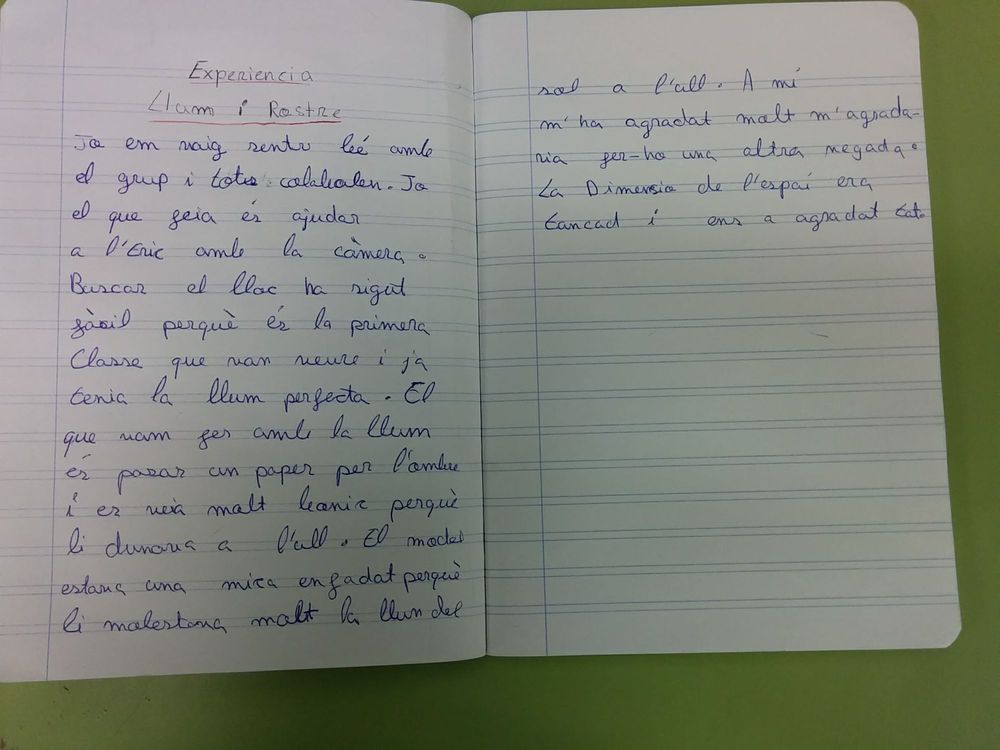 Experiencia
Llum i Rostre
Jo em vaig sentir bé amb
el grup i tots colaboren. Jo
el que feia és ajudar
a l'Eric amb la càmera.
Buscar el lloc ha sigut
fàcil perquè és la primera
Classe que van veure i ja
tenia la llum perfecta. El
que vam fer amb la llum
és posar un paper per l'ombre
i es veia molt bonic perquè
li dunava a l'ull. El model
estava una mica enfadat perquè
li molestava molt la llun del
sol a l'ull. A mi
m'ha agradat molt m'agrada-
ria fer-ho una altra vegada.
La Dimensio de l'espai era
tancad i ens a agradat tot.